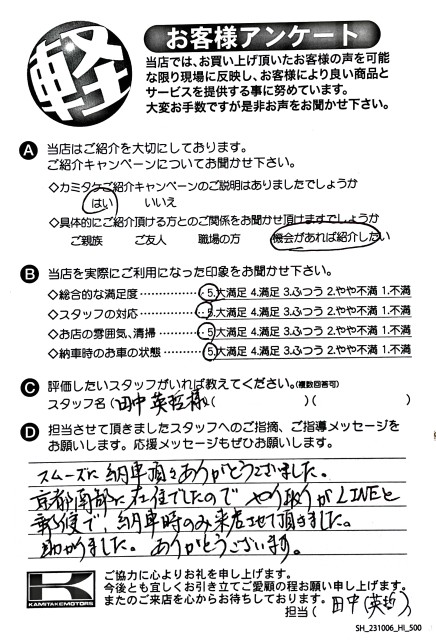 軽
お客様アンケート
当店では、お買い上げ頂いたお客様の声を可能
な限り現場に反映し、お客様により良い商品と
サービスを提供する事に努めています。
大変お手数ですが是非お声をお聞かせ下さい。
A 当店はご紹介を大切にしております。
ご紹介キャンペーンについてお聞かせ下さい。
◇カミタケご紹介キャンペーンのご説明はありましたでしょうか
はい いいえ
◇具体的にご紹介頂ける方とのご関係をお聞かせ頂けますでしょうか
ご親族 ご友人 職場の方 機会があれば紹介したい
B 当店を実際にご利用になった印象をお聞かせ下さい。
◇総合的な満足度・・・・・・・・・・5.大満足 4.満足 3.ふつう 2.やや不満 1.不満
◇スタッフの対応・・・・・・・・・・5.大満足 4.満足 3.ふつう 2.やや不満 1.不満
◇お店の雰囲気、清掃・・・・・・5.大満足 4.満足 3.ふつう 2.やや不満 1.不満
◇納車時のお車の状態・・・・・・5.大満足 4.満足 3.ふつう 2.やや不満 1.不満
C 評価したいスタッフがいれば教えてください。(複数回答可)
スタッフ名(田中 英哲様)( )( )
D 担当させて頂きましたスタッフへのご指摘、ご指導メッセージを
お願いします。応援メッセージもぜひお願いします。
スムーズに納車頂きありがとうございました。
京都南部に在住でしたので やり取りがLINEと
郵便で、納車時のみ来店させて頂きました。
助かりました。ありがとうございます。
K
KAMITAKEMOTORS
ご協力に心よりお礼を申し上げます。
今後とも宜しくお引き立てご愛顧の程お願い申し上げます。
またのご来店を心からお待ちしております。
担当( 田中(英哲) )
SH_231006_HI_500